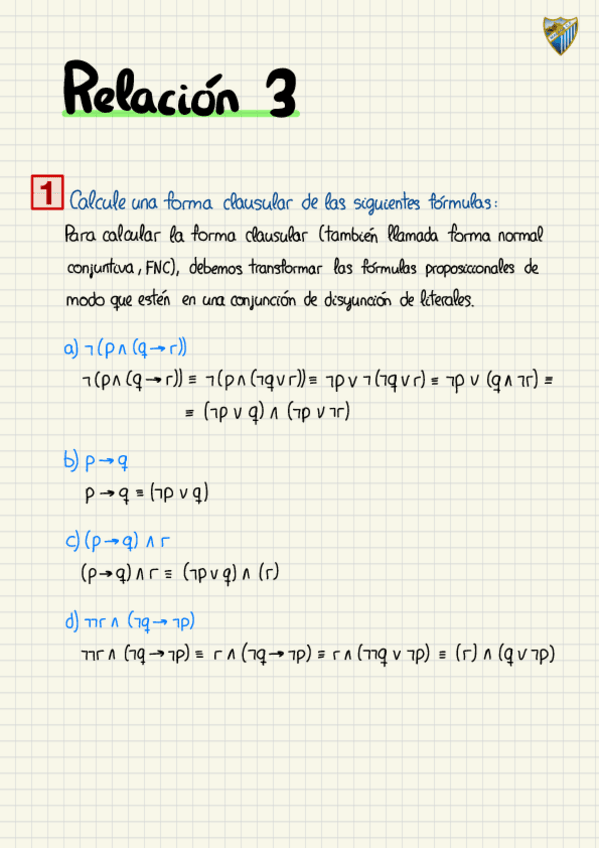 Relación 3
1 Calcule una forma clausular de las siguientes fórmulas:
Para calcular la forma clausular (también llamada forma normal
conjuntiva, FNC), debemos transformar las fórmulas proposicionales de
modo que estén en una conjunción de disyunción de literales.
a) ¬(p ∧ (q → r))
¬(p ∧ (q → r)) ≡ ¬(p ∧ (¬q ∨ r)) ≡ ¬p ∨ ¬(¬q ∨ r) ≡ ¬p ∨ (q ∧ ¬r) ≡
≡ (¬p ∨ q) ∧ (¬p ∨ ¬r)
b) p → q
p → q ≡ (¬p ∨ q)
c) (p → q) ∧ r
(p → q) ∧ r ≡ (¬p ∨ q) ∧ (r)
d) ¬¬r ∧ (¬q → ¬p)
¬¬r ∧ (¬q → ¬p) ≡ r ∧ (¬q → ¬p) ≡ r ∧ (¬¬q ∨ ¬p) ≡ (r) ∧ (q ∨ ¬p)